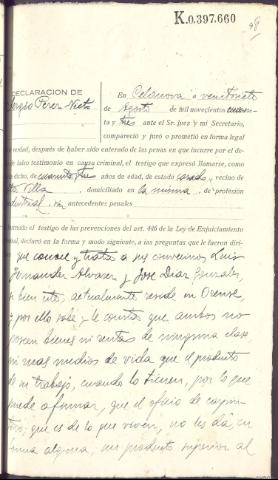 K.0.397.660
98
DECLARACION DE
Sergio Pérez Nieto
En Celanova a veintisiete
de Agosto de mil novecientos cuaren-
ta y tres ante el Sr. Juez y mi Secretario,
compareció y juró o prometió en forma legal
verdad, después de haber sido enterado de las penas en que incurre por el de-
falso testimonio en causa criminal, el testigo que expresó llamarse, como
dicho, de cuarenta y tres años de edad, de estado casado, vecino de
Villa domiciliado en la misma, de profesión
industrial, sin antecedentes penales
testigo de las prevenciones del art. 446 de la Ley de Enjuiciamiento
declaró en la forma y modo siguiente, a las preguntas que le fueron dirigi-
que conoce y trata a sus convecinos Luis
Fernandez Alvarez y Jose Diaz Gonzalez,
si bien este, actualmente reside en Orense,
y por ello sabe y le consta que ambos no
poseen bienes ni rentas de ninguna clase
ni mas medios de vida que el producto
de su trabajo, cuando lo tienen, por lo que
puede afirmar, que el oficio de carpin-
tero, que es de lo que viven, no les da, en
forma alguna, un producto superior al